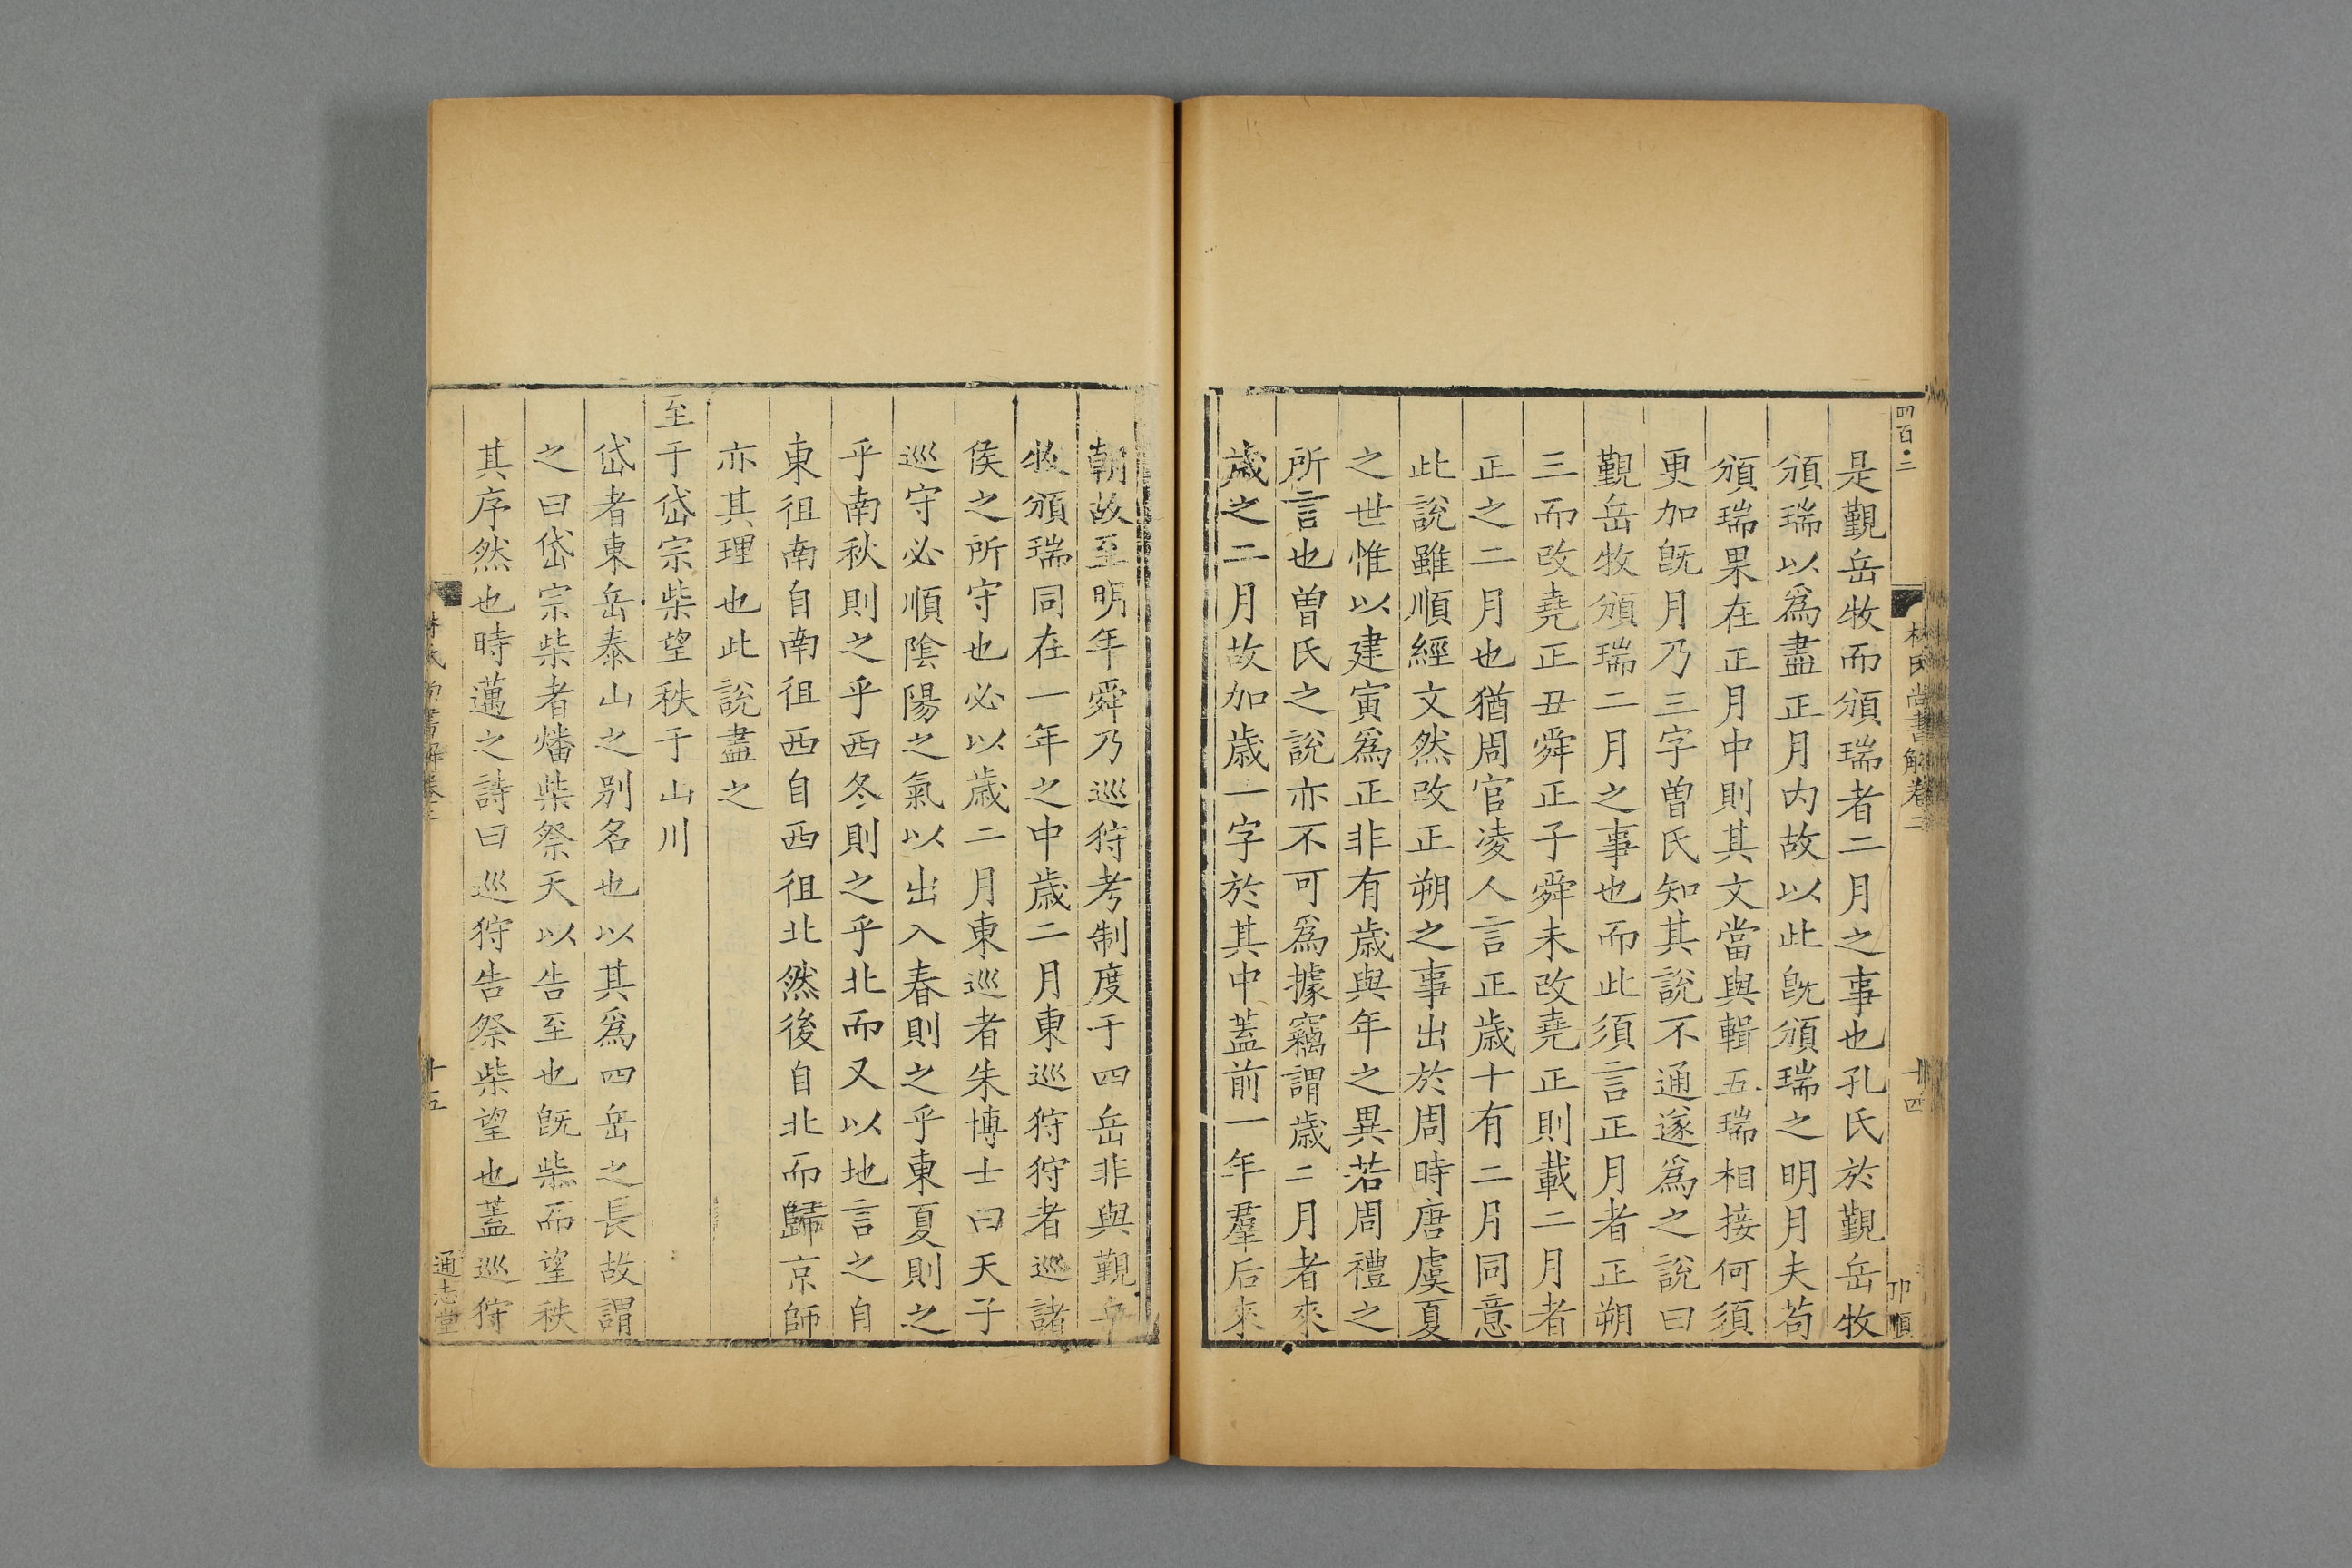 四百·二
林氏尚書解卷二
十四
卭順
是覲岳牧而頒瑞者二月之事也孔氏於覲岳牧
頒瑞以爲盡正月内故以此旣頒瑞之明月夫苟
頒瑞果在正月中則其文當與輯五瑞相接何須
更加旣月乃三字曽氏知其說不通遂爲之說曰
覲岳牧頒瑞二月之事也而此須言正月者正朔
三而改堯正丑舜正子舜未改堯正則載二月者
正之二月也猶周官凌人言正歲十有二月同意
此說雖順經文然改正朔之事出於周時唐虞夏
之世惟以建寅爲正非有歲與年之異若周禮之
所言也曽氏之說亦不可爲據竊謂歲二月者來
歲之二月故加歲一字於其中蓋前一年羣后來
朝故至明年舜乃巡狩考制度于四岳非與覲岳
牧頒瑞同在一年之中歲二月東巡狩狩者巡諸
侯之所守也必以歲二月東巡者朱博士曰天子
巡守必順陰陽之氣以出入春則之乎東夏則之
乎南秋則之乎西冬則之乎北而又以地言之自
東徂南自南徂西自西徂北然後自北而歸京師
亦其理也此說盡之
至于岱宗柴望秩于山川
岱者東岳泰山之别名也以其爲四岳之長故謂
之曰岱宗柴者燔柴祭天以告至也旣柴而望秩
其序然也時邁之詩曰巡狩告祭柴望也蓋巡狩
林氏尚書解卷二
十五
通志堂